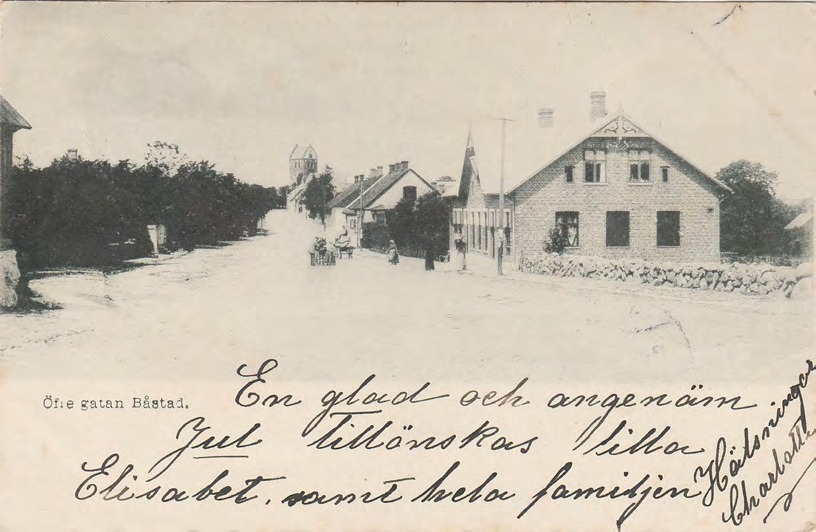 Öfre gatan Båstad.
En glad och angenäm
Jul tillönskas lilla
Elisabet, samt hela familjen
Hälsningar
Charlotte